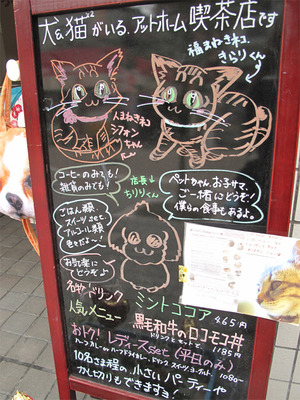 犬&猫x2がいる、アットホーム喫茶店です
福まねきネコ
きらりくん
人まねきネコ
シフォン
ちゃん
コーヒーのみでも!
雑貨のみでも!
店長↓
ちりりくん
ペットちゃん、お子サマ、
ご一緒にどうぞ!
僕らの食事もあるよ。
ごはん類
スイーツset
アルコール類
色々だよ〜!
お気軽に
どうぞ♪
名物ドリンク
ミントココア 465円
人気メニュー
黒毛和牛のロコモコ丼
ドリンクとセットで、1185円
おトク!レディースset(平日のみ)
1080〜
10名さま程の小さいパーティーや
かし切りもできますヨ!